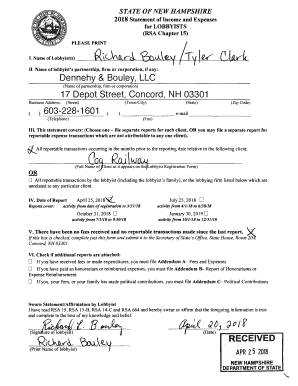 STATE OF NEW HAMPSHIRE
2018 Statement of Income and Expenses
for LOBBYISTS
(RSA Chapter 15)
PLEASE PRINT
I. Name of Lobbyist(s) Richard Bouley/Tyler Clark
II. Name of lobbyist's partnership, firm or corporation, if any:
Dennehy & Bouley, LLC
(Name of partnership, firm or corporation)
17 Depot Street, Concord, NH 03301
Business Address: (Street) (Town/City) (State) (Zip Code)
( ) 603-228-1601 ( ) e-mail
(Telephone) (Fax)
III. This statement covers: (Choose one – file separate reports for each client, OR you may file a separate report for
reportable expense transactions which are not attributable to any one client).
All reportable transactions occurring in the months prior to the reporting date relative to the following client:
Cog Railway
(Full Name of Client as it appears on the Lobbyist Registration Form)
OR
All reportable transactions by the lobbyist (including the lobbyist's family), or the lobbying firm listed below which are
unrelated to any particular client.
IV. Date of Report April 25, 2018 July 25, 2018
Reports cover: activity from date of registration to 3/31/18 activity from 4/1/18 to 6/30/18
October 31, 2018 January 30, 2019
activity from 7/1/18 to 9/30/18 activity from 10/1/18 to 12/31/18
V. There have been no fees received and no reportable transactions made since the last report. X
If this box is checked, complete just this form and submit it to the Secretary of State's Office, State House, Room 204,
Concord, NH 03301.
VI. Check if additional reports are attached:
If you have received fees or made expenditures, you must file Addendum A - Fees and Expenses
If you have paid an honorarium or reimbursed expenses, you must file Addendum B - Report of Honorarium or
Expense Reimbursement
If you, your firm, or your family has made political contributions, you must file Addendum C - Political Contributions
Sworn Statement/Affirmation by Lobbyist
I have read RSA 15, RSA 15-B, RSA 14-C and RSA 664 and hereby swear or affirm that the foregoing information is true
and complete to the best of my knowledge and belief.
Richard L. Bouley April 20, 2018
(Signature of lobbyist) (Date)
Richard Bouley
(Print Name of lobbyist)
RECEIVED
APR 25 2018
NEW HAMPSHIRE
DEPARTMENT OF STATE